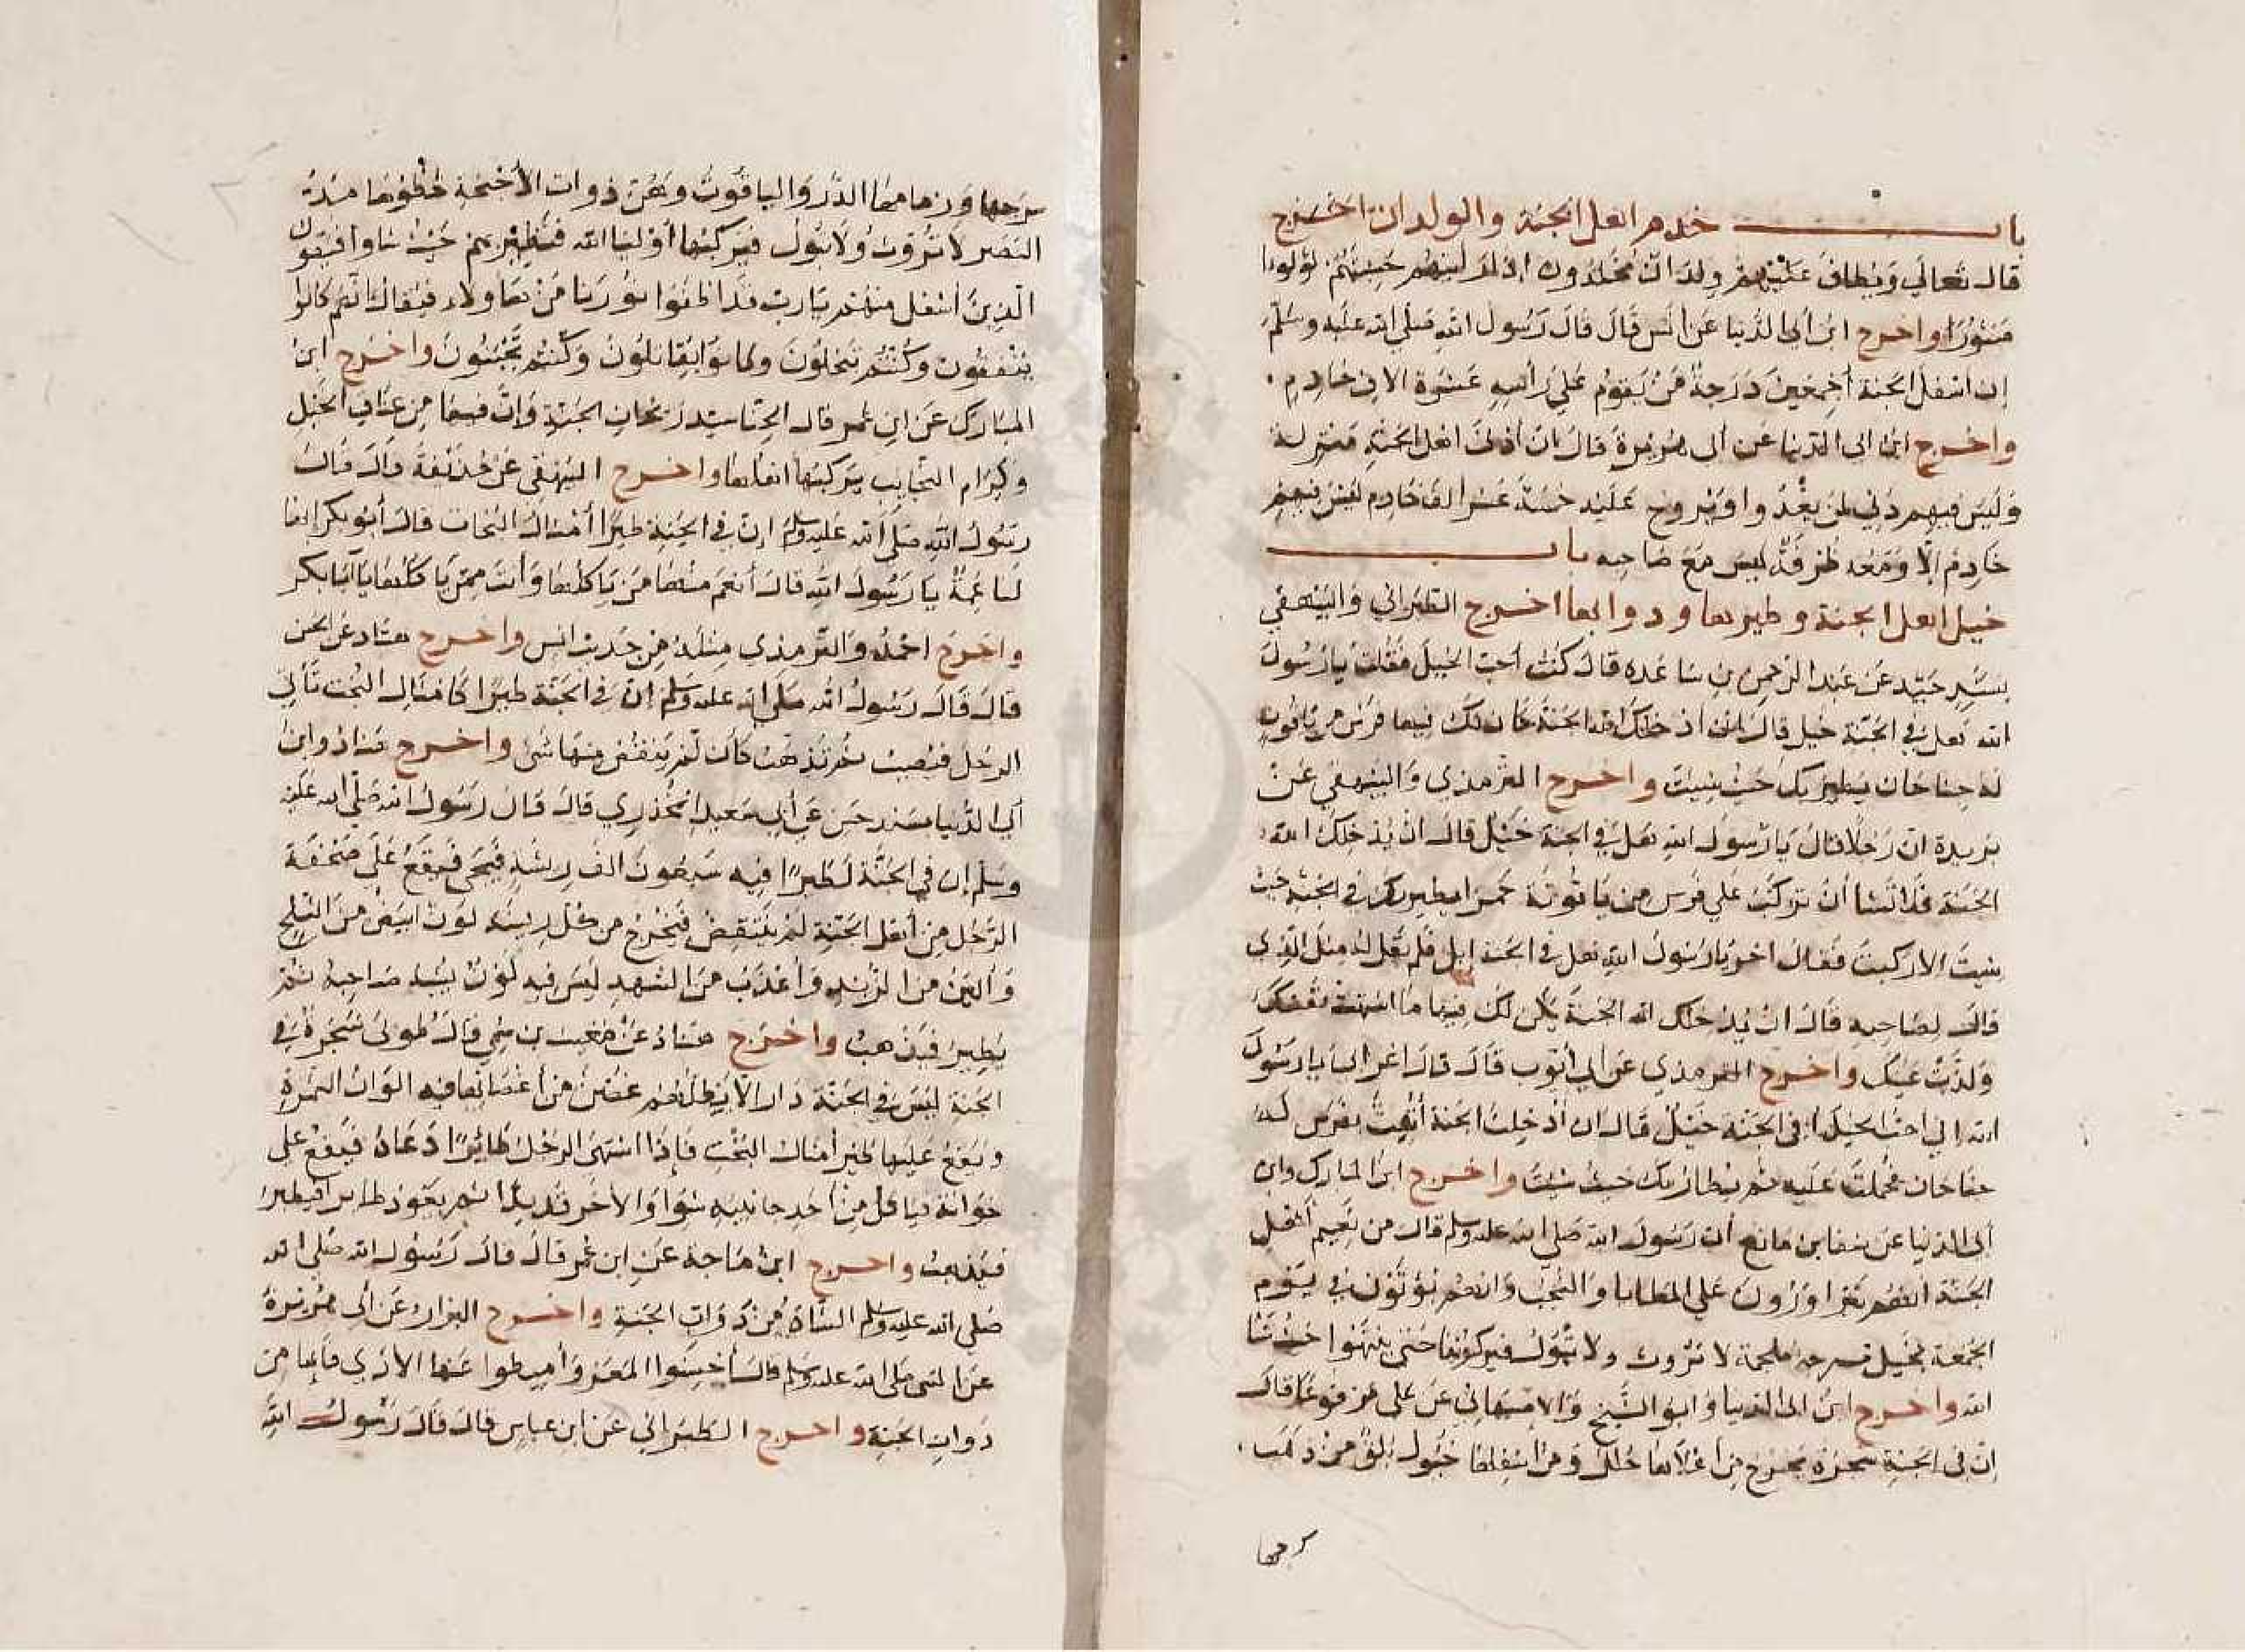 باب خدم اهل الجنة والولدان اخرج
قال تعالي ويطاف عليهم ولدان مخلدون اذا رايتهم حسبتهم لؤلوءا
منثورا واخرج ابن ابي الدنيا عن انس قال قال رسول الله صلي الله عليه وسلم
ان اسفل اهل الجنة اجمعين درجة من يقوم علي راسه عشرة الاف خادم
واخرج ابن ابي الدنيا عن ابي هريرة قال ان أدنى اهل الجنة منزلة
وليس فيهم دني لمن يغدوا ويروح عليه خمسة عشر الف خادم ليس فيهم
خادم الا ومعه طرفة ليس مع صاحبه باب
خيل اهل الجنة وطيرها ودوابها اخرج الطبراني والبيهقي
بسند جيد عن عبد الرحمن بن ساعدة قال كنت أحب الخيل فقلت يا رسول
الله هل في الجنة خيل قال ان ادخلك الله الجنة كان لك فيها فرس من ياقوت
له جناحان يطير بك حيث شيت واخرج الترمذي والبيهقي عن
بريدة ان رجلا قال يا رسول الله هل في الجنة خيل قال ان يدخلك الله
الجنة فلا تشا أن تركب علي فرس من ياقوتة حمرا يطير بك في الجنة حيث
شيت الا ركبت فقال اخر يا رسول الله هل في الجنة إبل فلم يقل له مثل الذي
قال لصاحبه قال ان يدخلك الله الجنة يكن لك فيها ما اشتهت نفسك
ولذت عينك واخرج الترمذي عن ابي أيوب قال قال اعرابي يا رسول
الله اني احب الخيل افي الجنة خيل قال ان أدخلت الجنة أتيت بفرس له
جناحان فحملت عليه ثم طار بك حيث شيت واخرج ابن المبارك وابن
أبي الدنيا عن شفا بن ماتع أن رسول الله صلي الله عليه وسلم قال من نعيم أهل
الجنة انهم يتزاورون علي المطايا والنجب وانهم يؤتون في يوم
الجمعة بخيل مسرجة ملجمة لا تروث ولا تبول فيركبونها حتى ينتهوا حيث شا
الله واخرج ابن ابي الدنيا وابو الشيخ والاصبهاني عن علي مرفوعا قال
ان في الجنة شجرة يخرج من أعلاها حلل ومن اسفلها خيول بلق من ذهب
سرجها
سرجها وزمامها الدر والياقوت وهن ذوات الأجنحة خطوها مد
البصر لا تروث ولا تبول فيركبها أوليا الله فتطير بهم حيث شاوا فيقول
الذين أسفل منهم يا رب قد اطفوا نورنا من هاولاء فيقال انهم كانوا
ينفقون وكنتم تبخلون وكانوا يقاتلون وكنتم تجبنون واخرج ابن
المبارك عن ابن عمر قال الحنا سيد ريحان الجنة وان فيها من عتاق الخيل
وكرام النجايب يركبها اهلها واخرج البيهقي عن حذيفة قال قال
رسول الله صلى الله عليه وسلم ان في الجنة طيرا أمثال البخات قال أبو بكر انها
لناعمة يا رسول الله قال أنعم منها من ياكلها وأنت ممن ياكلها يا أبا بكر
واخرج احمد والترمذي مثله من حديث انس واخرج هناد عن الحسن
قال قال رسول الله صلى الله عليه وسلم ان في الجنة طيرا كامثال البخت تأتي
الرجل فيصيب ثم تذهب كأن لم ينقص منها شي واخرج هناد وابن
أبي الدنيا بسند حسن عن أبي سعيد الخدري قال قال رسول الله صلى الله عليه
وسلم إن في الجنة لطيرا فيه سبعون الف ريشة فيجي فيقع على صحفة
الرجل من أهل الجنة ثم ينتفض فيخرج من كل ريشة لون ابيض من الثلج
وألين من الزبد وأعذب من الشهد ليس فيه لون يشبه صاحبه ثم
يطير فيذهب واخرج هناد عن مغيث بن سمي قال طوبى شجرة في
الجنة ليس في الجنة دار الا يظلهم غصن من أغصانها فيه الوان الثمرة
ويقع عليها طير أمثال البخت فإذا اشتهى الرجل طائرا دعاه فيقع على
خوانه فياكل من أحد جانبيه شوا والاخر قديدا ثم يعود طائرا فيطير
فيذهب واخرج ابن ماجة عن ابن عمر قال قال رسول الله صلي الله
صلى الله عليه وسلم الشاة من دواب الجنة واخرج البزار عن ابي هريرة
عن النبي صلى الله عليه وسلم قال أحسنوا المعز وأميطوا عنها الاذي فانها من
دواب الجنة واخرج الطبراني عن ابن عباس قال قال رسول الله